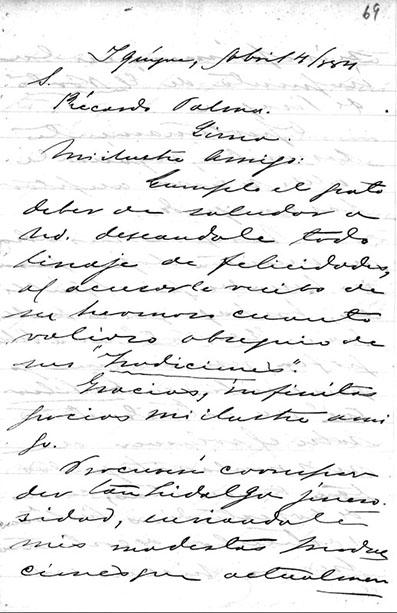 69
Iquique, Abril 4/884
S.
Ricardo Palma.
Lima.
Mi ilustre amigo:
Cumplo el grato
deber de saludar a
Ud. deseandole todo
linaje de felicidades,
al acusarle recibo de
su hermoso cuanto
valioso obsequio de
sus "Tradiciones".
Gracias, infinitas
gracias mi ilustre ami
go.
Procuraré corresponder
der tan hidalga jenero
sidad, enviandole
mis modestas produc
ciones que actualmen